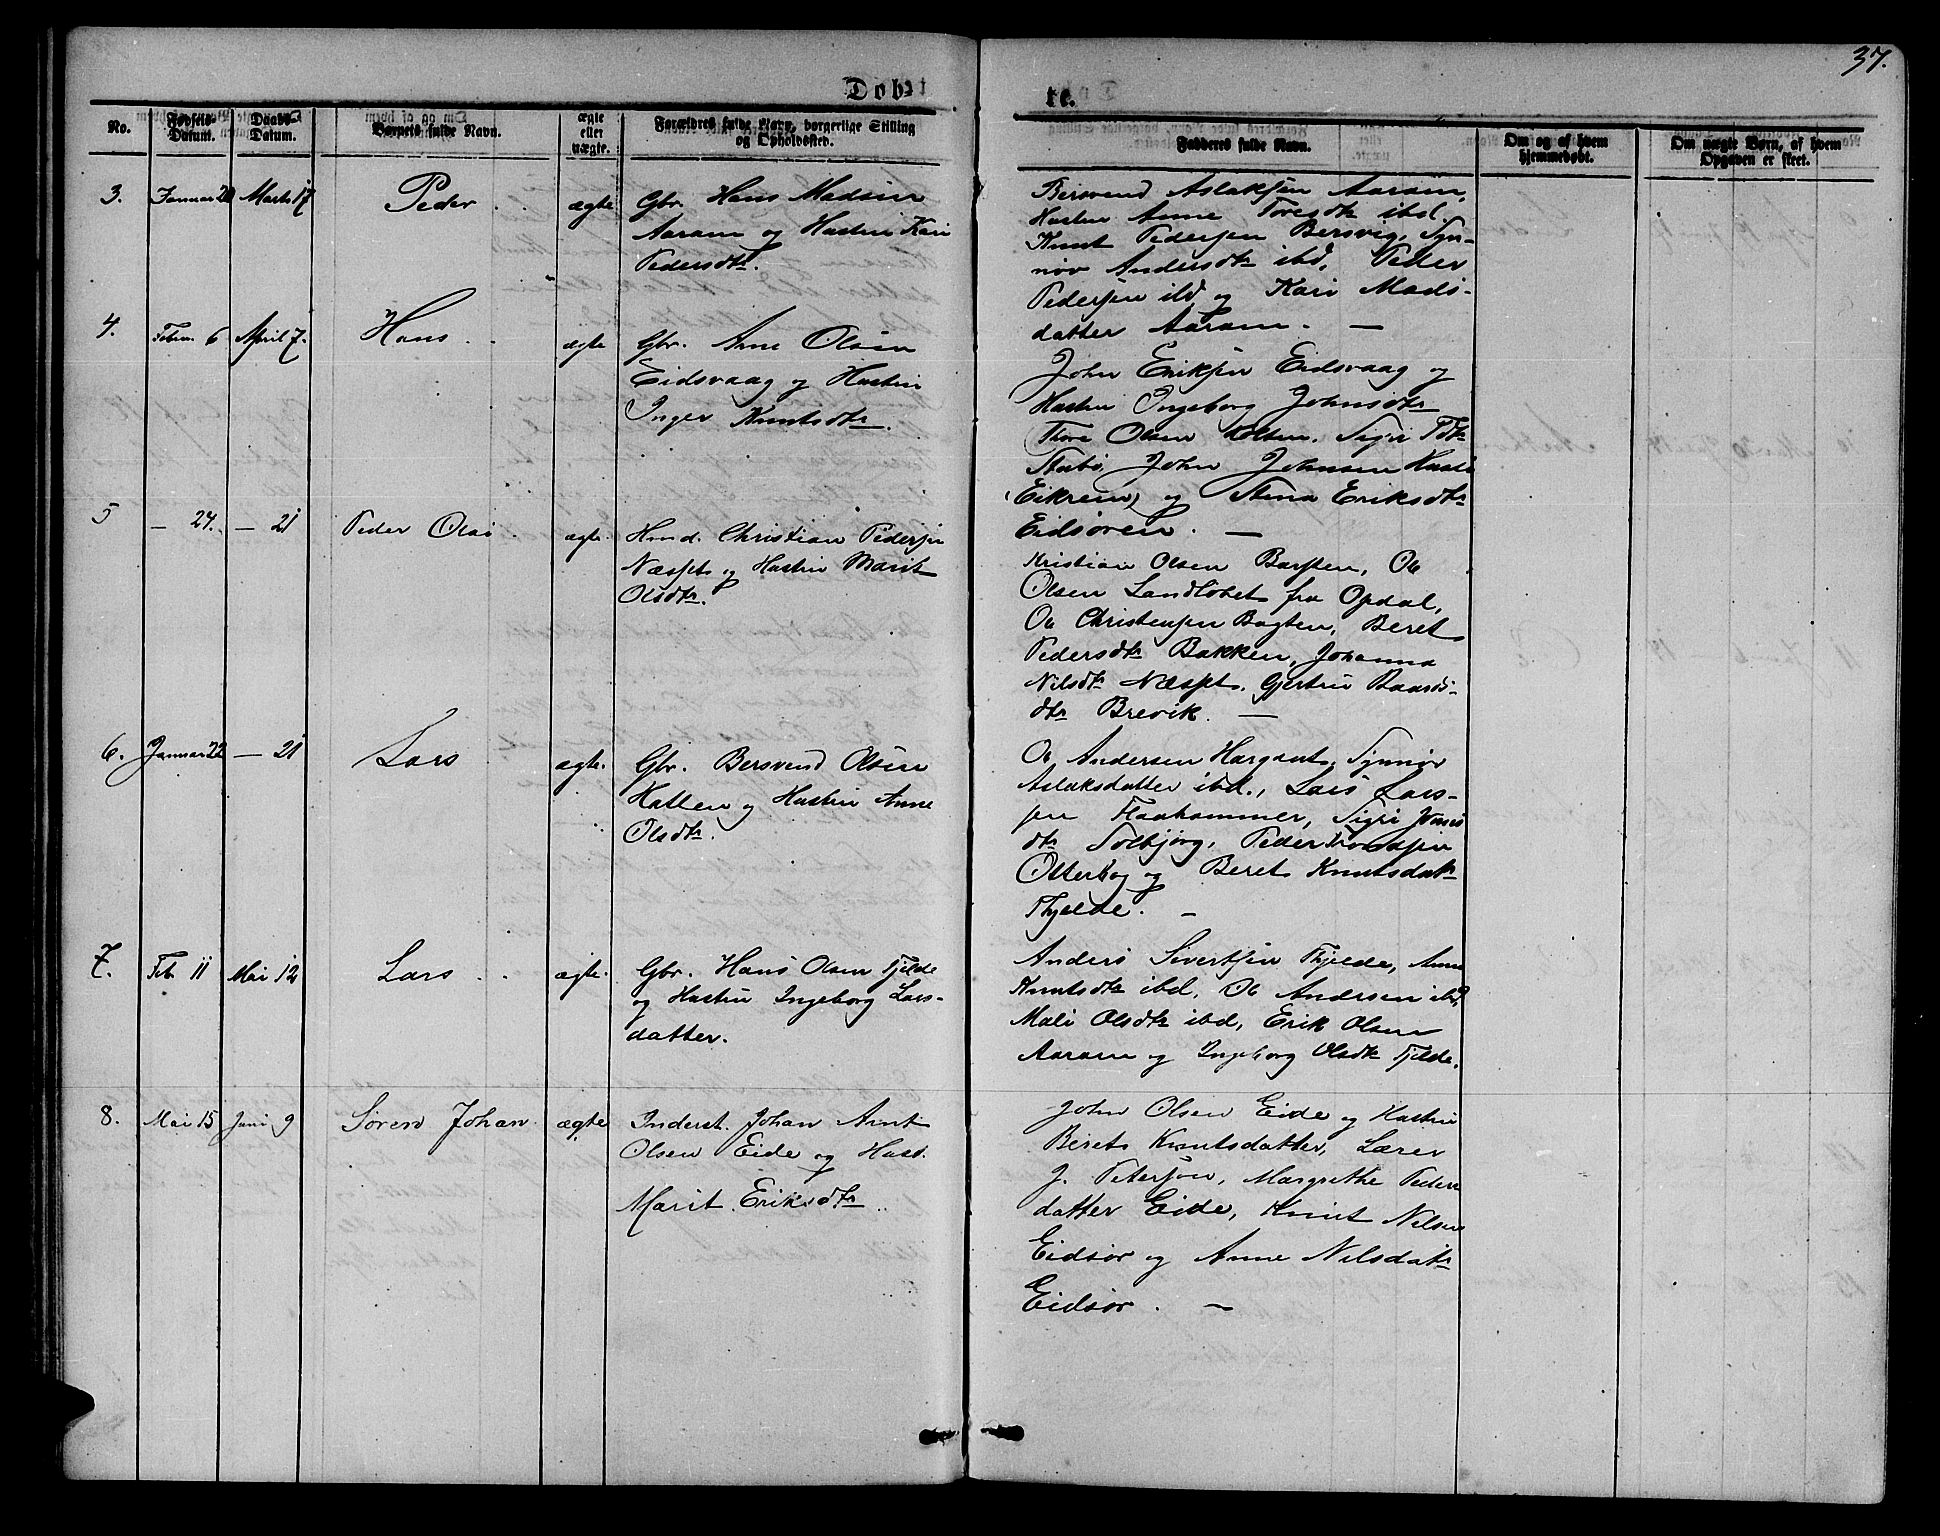 37.
Døbte.
No.
Fødsels-Datum.
Daabs-Datum.
Barnets fulde Navn.
ægte eller uægte.
Forældres fulde Navn, borgerlige Stilling og Opholdssted.
Fadderes fulde Navn.
Om og af hvem hjemmedøbt.
Om uægte Børn, af hvem Opgaven er skeet.
3. Januar 20 Marts 17 Peder ægte
Gbr. Hans Madsen
Aaram og Hustru Kari
Pedersdtr.
Bersvend Aslaksen Aaram,
Hustru Anne Toresdtr ibd.
Knut Pedersen Bersvig, Syn-
nøv Andersdtr ibd, Peder
Pedersen ibd og Kari Mads-
datter Aaram. —
4. Febru. 6 April 7. Hans ægte
Gbr. Arne Olsen
Eidsvaag og Hustru
Inger Knutsdtr.
John Eriksen Eidsvaag og
Hustru Ingeborg Johnsdtr
Thore Olsen Sigri
John Johnsen
(Eikrem) og Stina Eriksdtr
Eidsøren. —
5 — 24. — 21 Peder Olai ægte
Hmd. Christian Pedersen
Næspt og Hustru Marit
Olsdtr.
Kristian Olsen Barsten, Ole
Olsen Landlöbet fra Opdal,
Ole Christensen Bogten, Beret
Pedersdtr Bakken, Johanna
Nilsdtr Næspt. Gjertru Baards-
dtr Brevik. —
6. Januar 22 — 21 Lars ægte.
Gbr. Bersvend Olsen
Hatlen og Hustru Anne
Olsdtr.
Ole Andersen Hargaut, Synnøv
Aslaksdatter ibd., Lars Lars-
sen Flaahammer, Sigri Jonsdtr
Solbjørg, Peder Trondsen
Otterbog og Beret Knutsdatr
Thjelde. —
7. Feb. 11 Mai 12 Lars ægte.
Gbr. Hans Olsen Tjelde
og Hustru Ingeborg Lars-
datter.
Anders Sivertsen Thjelde, Anne
Knutsdtr ibd, Ole Andersen ibd,
Mali Olsdtr ibd, Erik Olsen
Aaram og Ingeborg Olsdtr Tjelde.
8. Mai 15 Juni 9 Søren Johan ægte
Inderst. Johan Arnt
Olsen Eide og Hust.
Marit Eriksdtr
John Olsen Eide og Hustru
Berets Knutsdatter, Lærer
J. Petersøn, Margrethe Peders
datter Eide, Knut Nilsen
Eidsør og Anne Nilsdatr
Eidsør. —